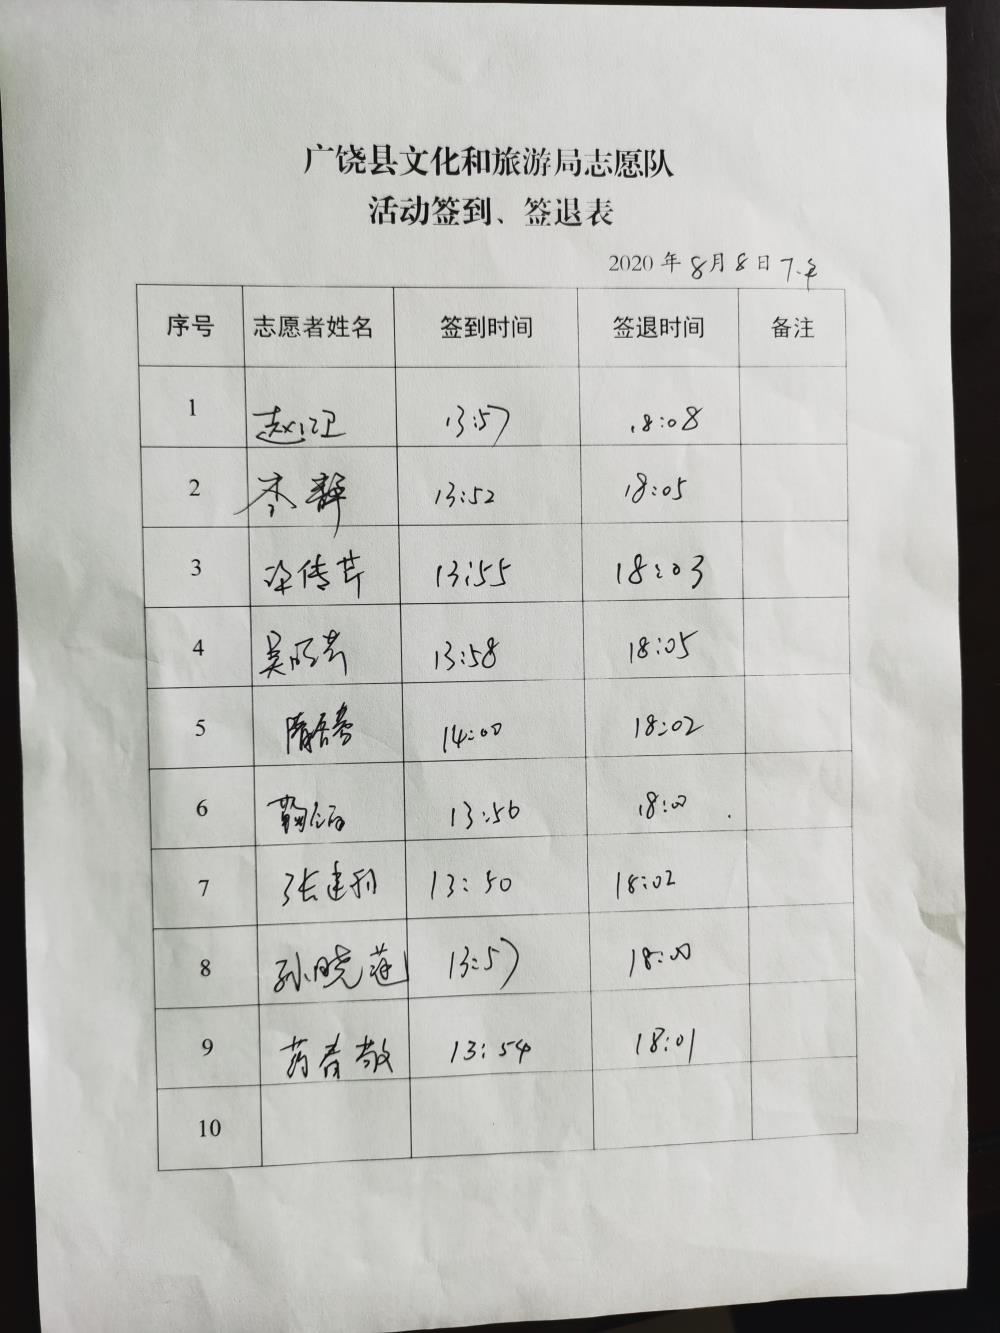 广饶县文化和旅游局志愿队
活动签到、签退表
2020 年 8月 8日 下午
序号 志愿者姓名 签到时间 签退时间 备注
1 赵卫 13:57 18:08
2 李静 13:52 18:05
3 梁传芹 13:55 18:03
4 吴明芹 13:58 18:05
5 14:00 18:02
6 13:56 18:00
7 张建利 13:50 18:02
8 孙晓莲 13:57 18:00
9 春敬 13:54 18:01
10